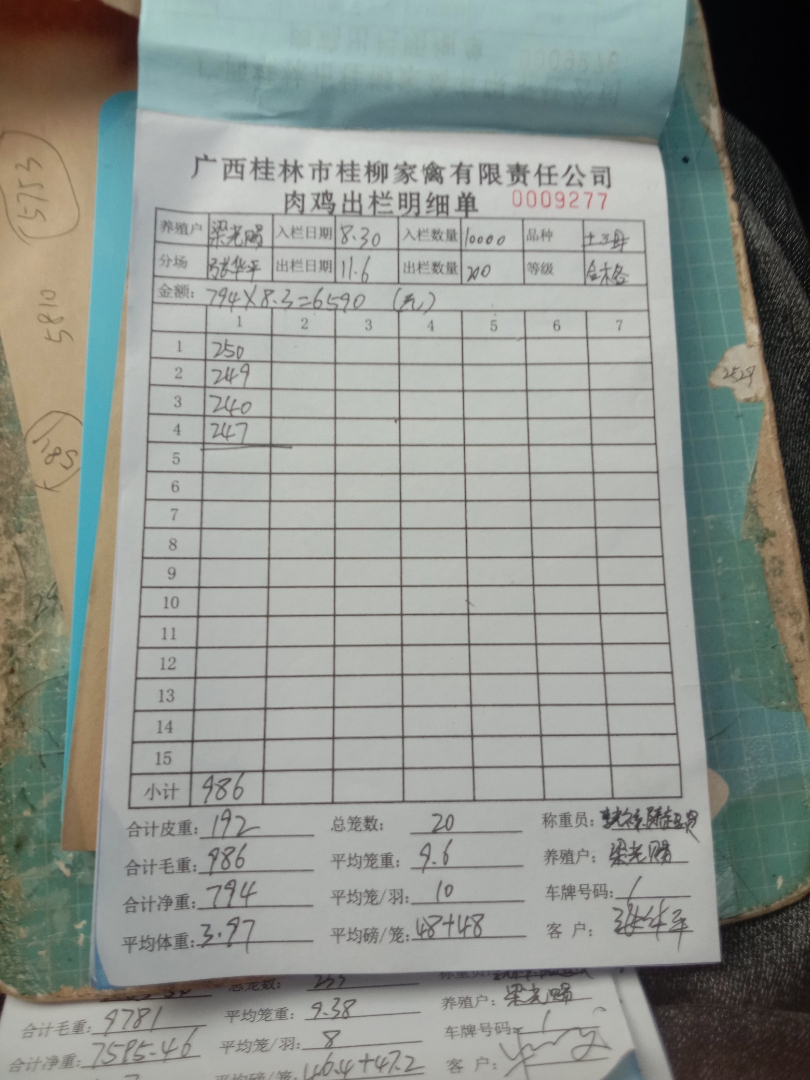 广西桂林市桂柳家禽有限责任公司
肉鸡出栏明细单 0009277
养殖户 梁光赐 入栏日期 8.30 入栏数量 10000 品种
分场 出栏日期 11.6 出栏数量 200 等级 合格
金额: 794×8.3=6590 (元)
1 2 3 4 5 6 7
1 250
2 249
3 240
4 247
5
6
7
8
9
10
11
12
13
14
15
小计 986
合计皮重: 192 总笼数: 20 称重员:
合计毛重: 986 平均笼重: 9.6 养殖户: 梁光赐
合计净重: 794 平均笼/羽: 10 车牌号码: /
平均体重: 3.97 平均磅/笼: 48+48 客户:
总笼数: 称重员:
合计毛重: 9781 平均笼重: 9.38 养殖户: 梁光赐
合计净重: 7585.46 平均笼/羽: 8 车牌号码: /
平均磅/笼: 46.4+47.2 客户:
5753
5810
785
2529